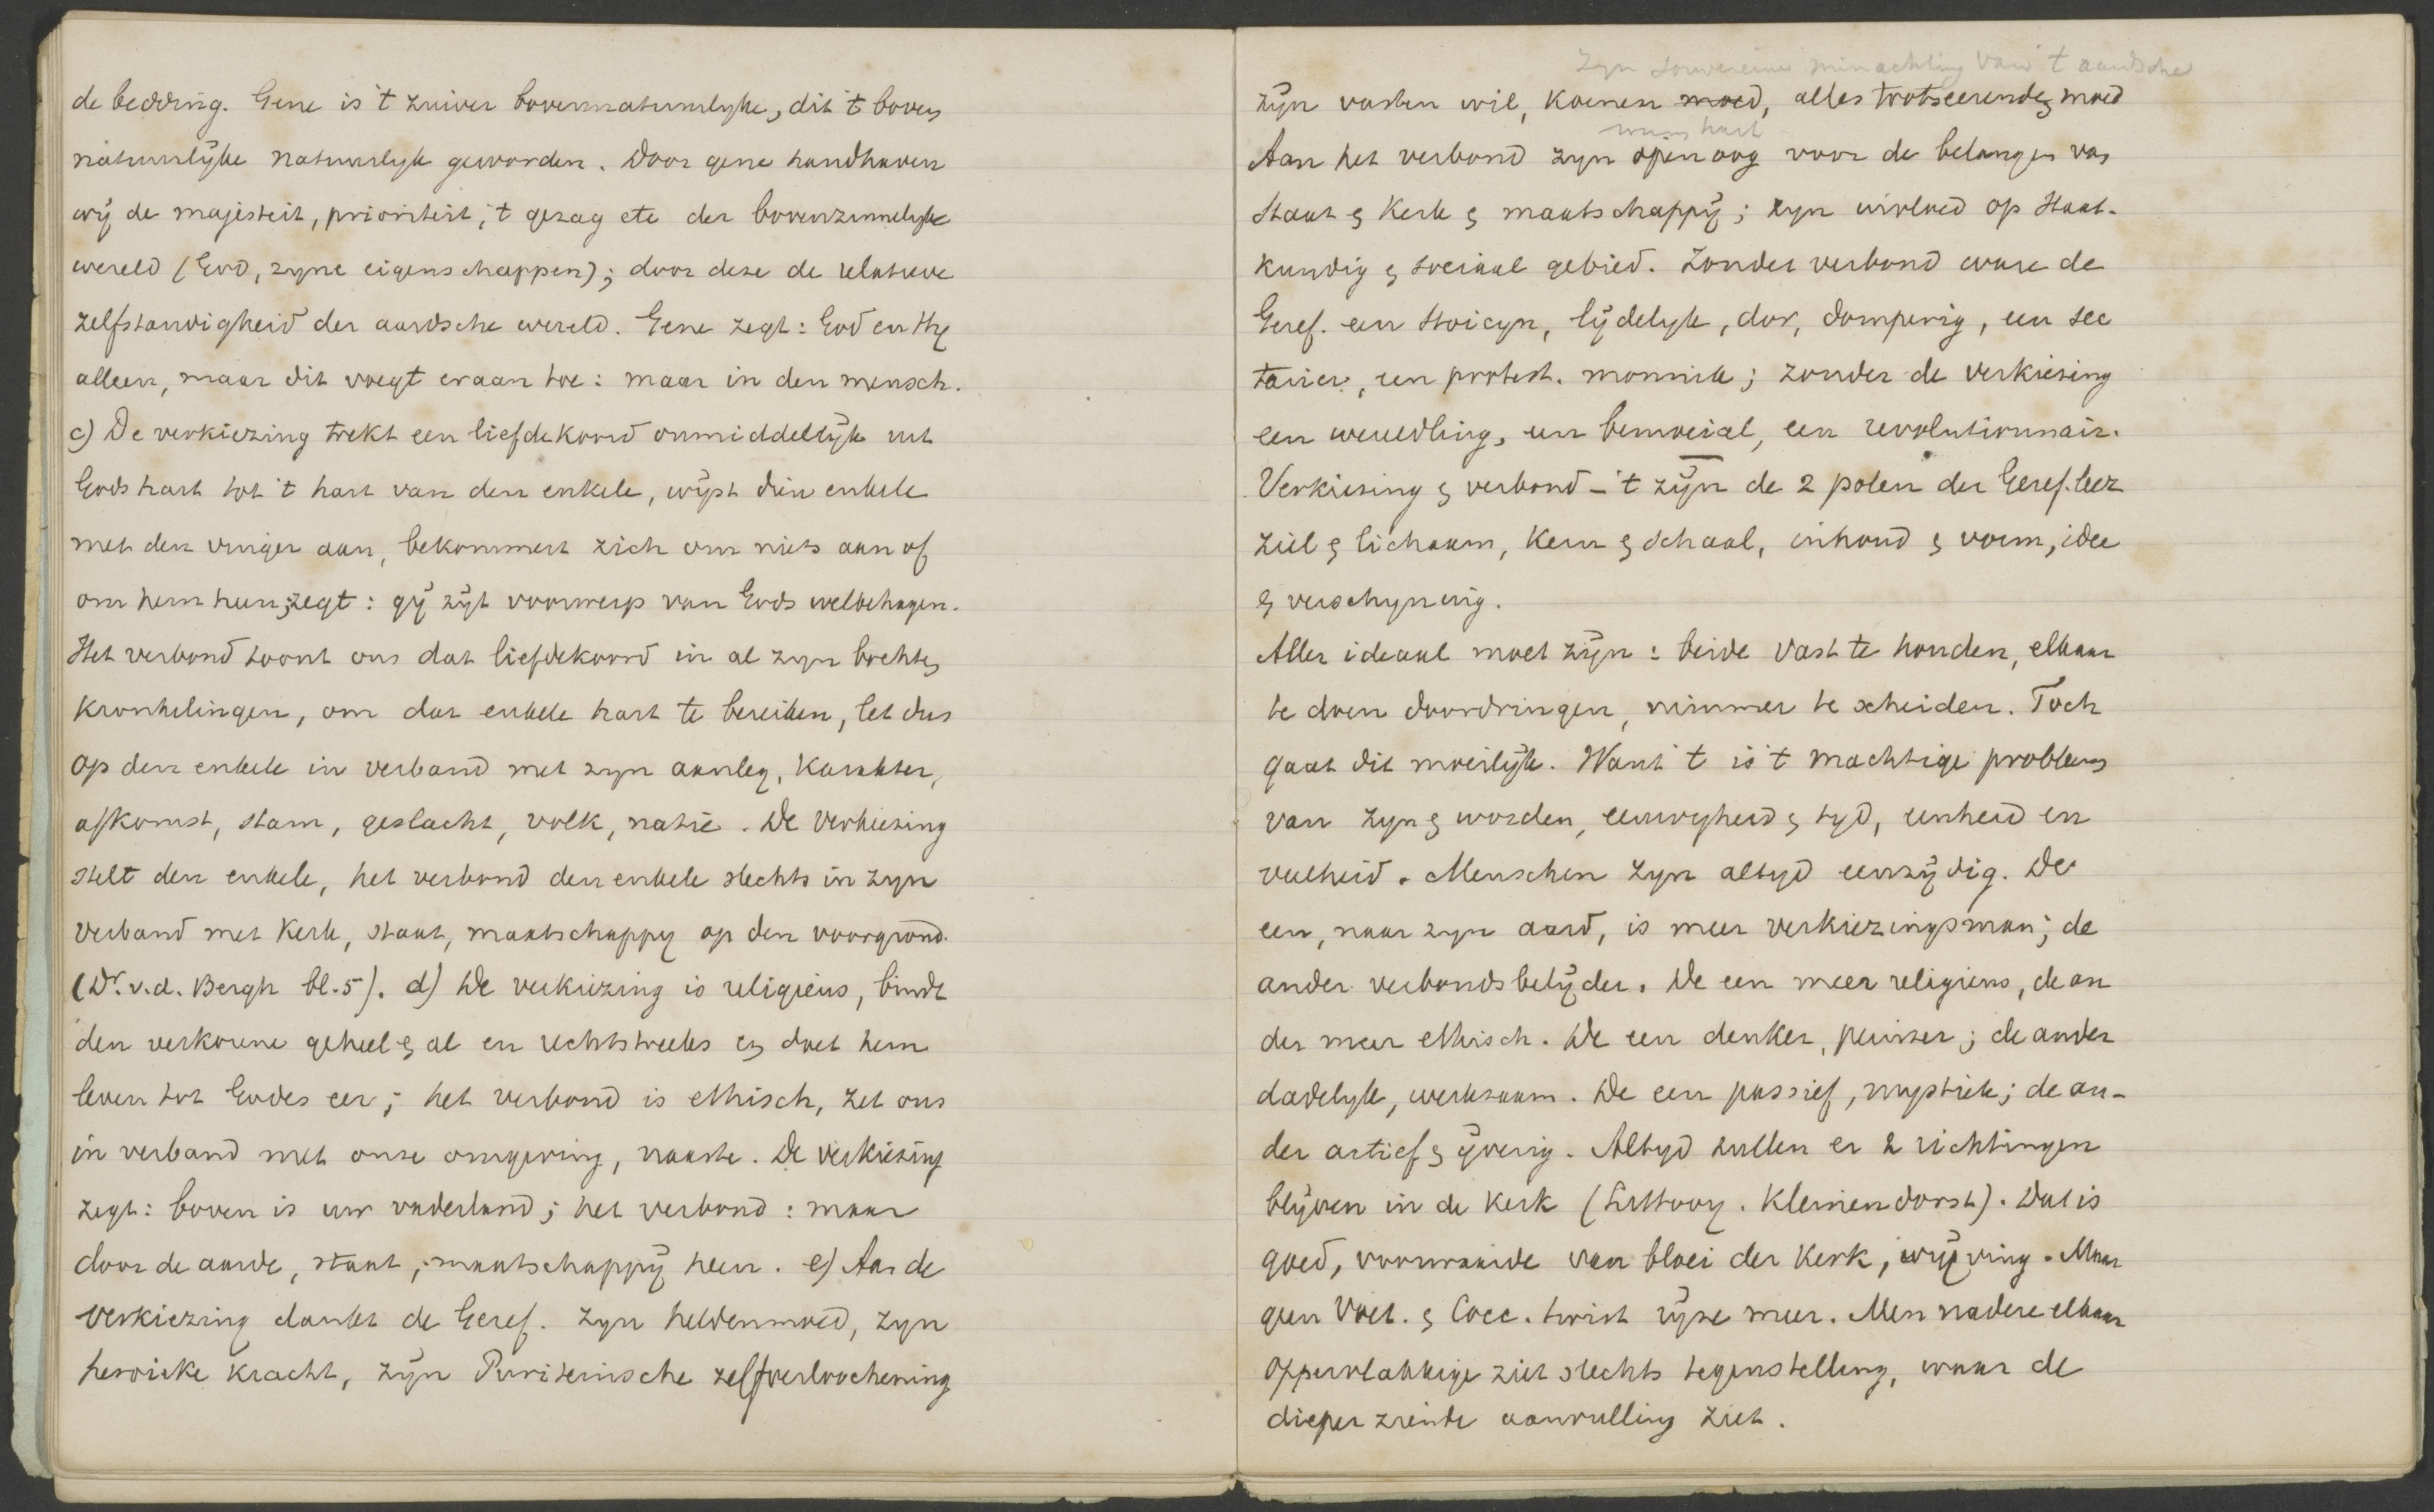 de bedding. Gene is 't zuiver bovennatuurlyke, dit 't boven
natuurlijke natuurlyk geworden. Door gene handhaven
wij de majesteit, prioriteit, 't gezag etc der bovenzinnelyke
wereld (God, zyne eigenschappen); door deze de relatieve
zelfstandigheid der aardsche wereld. Gene zegt: God en Hy
alleen, maar dit voegt eraan toe: maar in den mensch.
c) De verkiezing trekt een liefdekoord onmiddellijk uit
Gods hart tot 't hart van den enkele, wijst dien enkele
met den vinger aan, bekommert zich om niets aan of
om hem heen; zegt: gij zijt voorwerp van Gods welbehagen.
Het verbond toont ons dat liefdekoord in al zyn bochten
kronkelingen, om dat enkele hart te bereiken, let dus
op den enkele in verband met zyn aanleg, karakter,
afkomst, stam, geslacht, volk, natie. De verkiezing
stelt den enkele, het verbond den enkele slechts in zyn
verband met kerk, staat, maatschappy op den voorgrond.
(Dr. v.d. Bergh bl. 5). d) De verkiezing is religieus, bindt
den verkorene geheel & al en rechtstreeks en doet hem
leven tot Godes eer; het verbond is ethisch, zet ons
in verband met onze omgeving, naaste. De verkiezing
zegt: boven is uw vaderland; het verbond: maar
door de aarde, staat, maatschappij heen. e) Aan de
verkiezing dankt de Geref. zyn heldenmoed, zyn
heroieke kracht, zijn Puriteinsche zelfverloochening
zyn souvereine minachting van 't aardsche
zijn vasten wil, koenen moed, alles trotseerende moed
warm hart
Aan het verbond zyn open oog voor de belangen van
Staat & Kerk & maatschappij; zyn invloed op Staat-
kundig & sociaal gebied. Zonder verbond ware de
Geref. een Stoicyn, lijdelyk, dor, domperig, een sec
tarier, een protest. monnik; zonder de verkiezing
een wereldling, een bemoeial, een revolutionnair.
Verkiezing & verbond - 't zijn de 2 polen der Geref. leer
ziel & lichaam, kern & schaal, inhoud & vorm, idee
& verschyning.
Aller ideaal moet zijn: beide vast te houden, elkaar
te doen doordringen, nimmer te scheiden. Toch
gaat dit moeilijk. Want 't is 't machtige probleem
van zyn & worden, eeuwigheid & tyd, eenheid en
veelheid. Menschen zyn altyd eenzijdig. De
een, naar zyn aard, is meer verkiezingsman; de
ander verbondsbelijder. De een meer religieus, de an
der meer ethisch. De een denker, peinser; de ander
dadelyk, werkzaam. De een passief, mystiek; de an-
der actief & ijverig. Altyd zullen er 2 richtingen
blijven in de kerk (Littooy. Kleinendorst). Dat is
goed, voorwaarde van bloei der kerk, wrijving. Maar
geen Voet. & Cocc. twist rijze meer. Men nadere elkaar
oppervlakkige ziet slechts tegenstelling, waar de
dieper ziende aanvulling ziet.